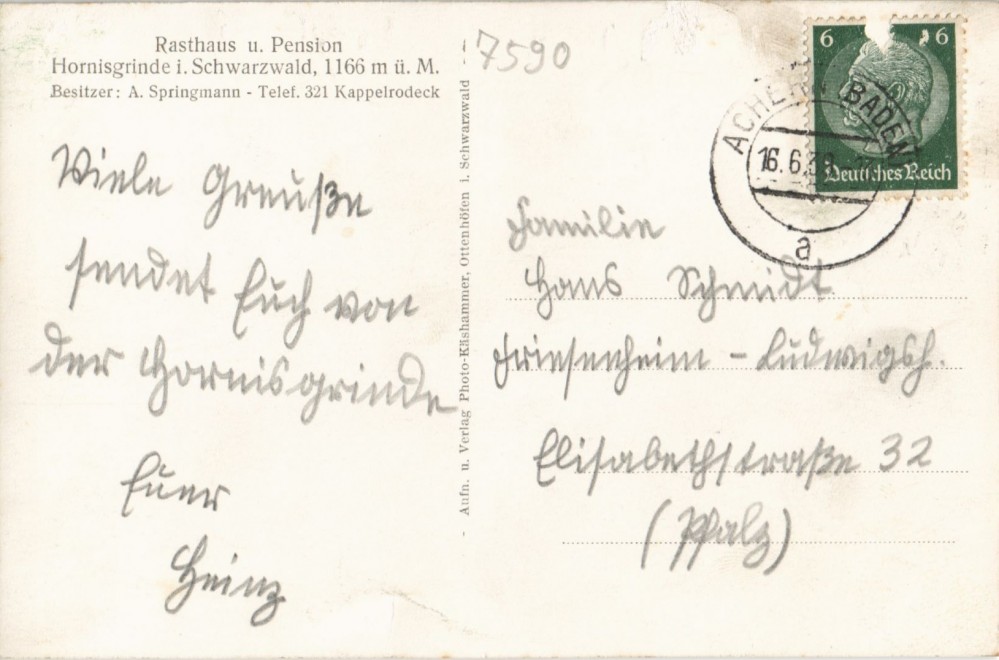 Rasthaus u. Pension
Hornisgrinde i. Schwarzwald, 1166 m ü. M.
Besitzer: A. Springmann - Telef. 321 Kappelrodeck
Viele Greuße
sendet Euch von
der Hornisgrinde
Euer
Heinz
- Aufn. u. Verlag Photo-Käshammer, Ottenhöfen i. Schwarzwald -
7590
6 6
Deutsches Reich
ACHERN BADEN
16.6.3
a
Familie
Hans Schmidt
Friesenheim - Ludwigsh.
Elisabethstraße 32
(Pfalz)